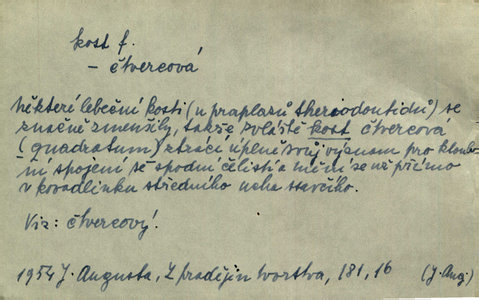 kost f.
– čtvercová
některé lebeční kosti (u praplazů theriodontidů) se
značně zmenšily, takže zvláště kost čtvercová
(quadratum) ztrácí úplně svůj význam pro kloub-
ní spojení se spodní čelistí a mění se už přímo
v kovadlinku středního ucha savčího.
Viz: čtvercový.
1954 J. Augusta, Z pradějin tvorstva, 181, 16 (J. Aug.)